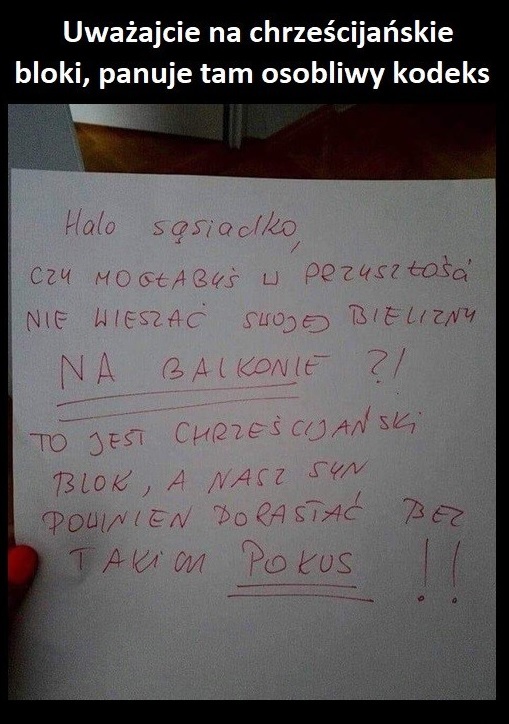 Uważajcie na chrześcijańskie
bloki, panuje tam osobliwy kodeks
Halo sąsiadko,
CZY MOGŁABYŚ W PRZYSZŁOŚCI
NIE WIESZAĆ SWOJEJ BIELIZNY
NA BALKONIE ?!
TO JEST CHRZEŚCIJAŃSKi
BLOK, A NASZ SYN
POWINIEN DORASTAĆ BEZ
TAKiCH POKUS !!